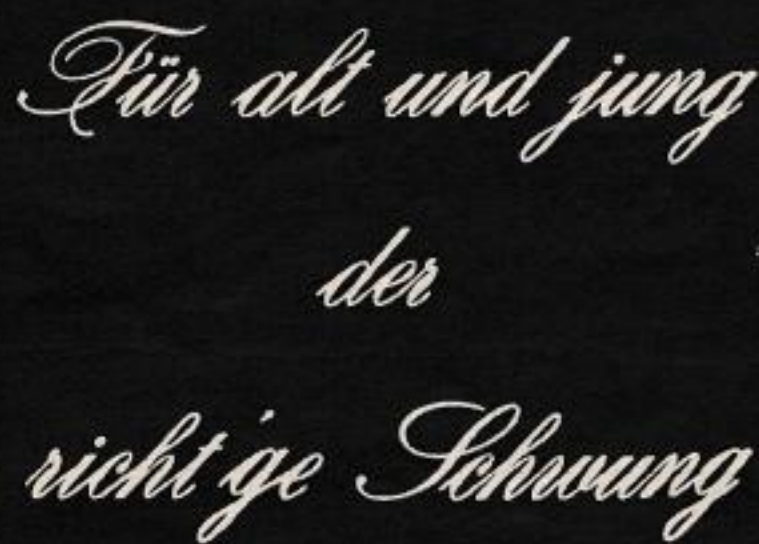 Für alt und jung
der
richt'ge Schwung